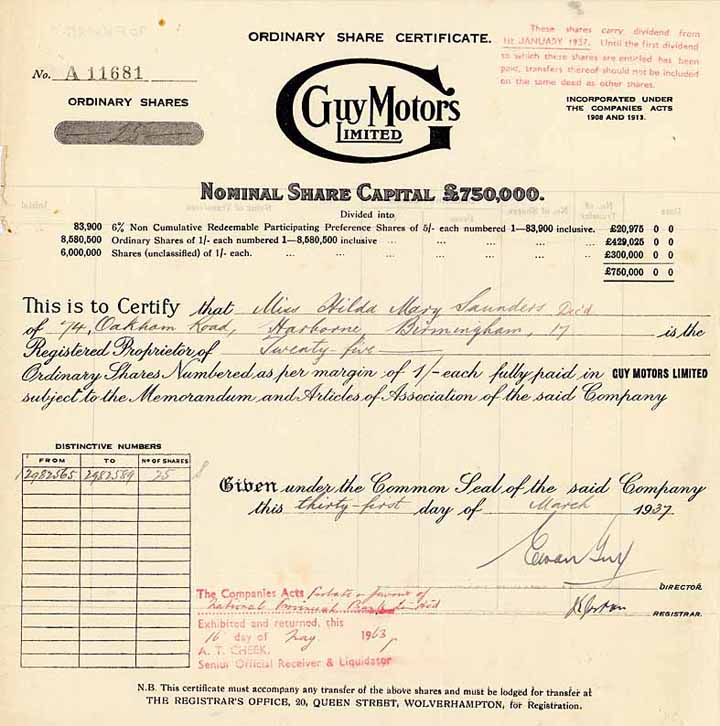 ORDINARY SHARE CERTIFICATE.
These shares carry dividend from
1st JANUARY 1937. Until the first dividend
to which these shares are entitled has been
paid, transfers thereof should not be included
on the same deed as other shares.
No. A 11681
ORDINARY SHARES
25
GUY MOTORS
LIMITED
INCORPORATED UNDER
THE COMPANIES ACTS
1908 AND 1913.
NOMINAL SHARE CAPITAL £750,000.
Divided into
83,900 6% Non Cumulative Redeemable Participating Preference Shares of 5/- each numbered 1—83,900 inclusive. £20,975 0 0
8,580,500 Ordinary Shares of 1/- each numbered 1—8,580,500 inclusive ... ... ... ... ... £429,025 0 0
6,000,000 Shares (unclassified) of 1/- each. ... ... ... ... ... ... £300,000 0 0
£750,000 0 0
This is to Certify that Miss Hilda Mary Saunders Dec'd
of 74, Oakham Road, Harborne, Birmingham, 17 is the
Registered Proprietor of Twenty-five
Ordinary Shares Numbered as per margin of 1/- each fully paid in GUY MOTORS LIMITED
subject to the Memorandum and Articles of Association of the said Company
DISTINCTIVE NUMBERS
FROM TO No OF SHARES
2982565 2982589 25
Given under the Common Seal of the said Company
this thirty-first day of March 1937
Ewan Guy
DIRECTOR.
REGISTRAR.
The Companies Acts Probate in favour of
National Provincial Bank Ltd
Exhibited and returned, this
16 day of May 1963
A. T. CHEEK,
Senior Official Receiver & Liquidator
N.B. This certificate must accompany any transfer of the above shares and must be lodged for transfer at
THE REGISTRAR'S OFFICE, 20, QUEEN STREET, WOLVERHAMPTON, for Registration.